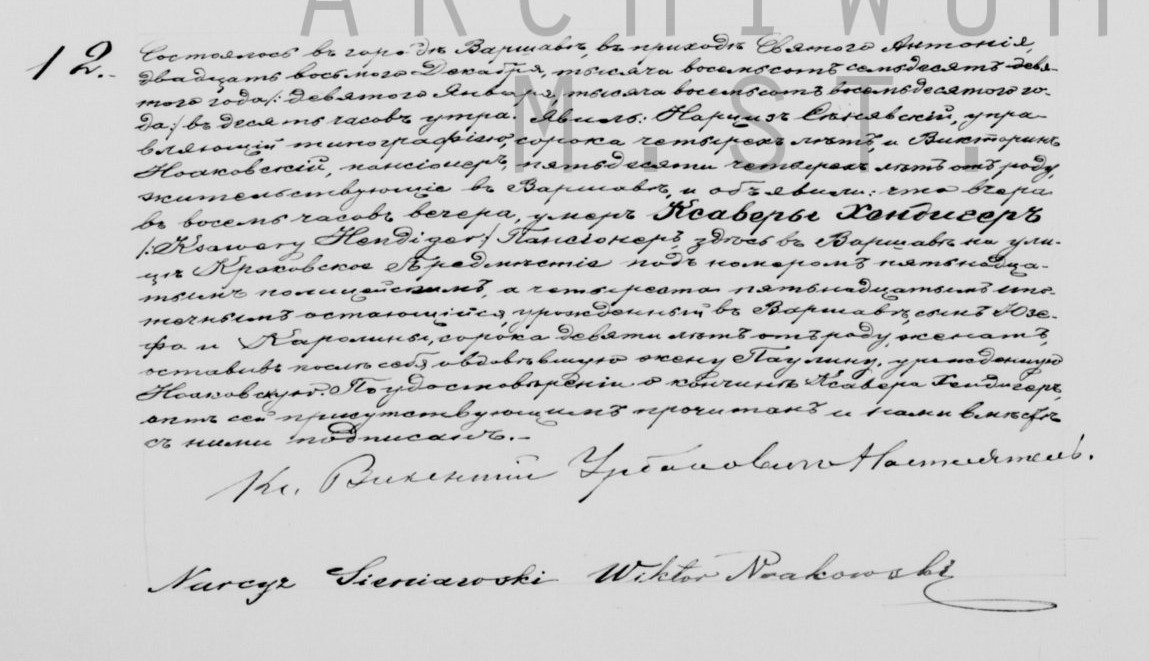 ARCHIWUM
M. ST.
12.
Состоялось въ городѣ Варшавѣ, въ приходѣ Святого Антонія,
двадцать восьмого Декабря, тысяча восемьсотъ семьдесятъ девя-
того года /: девятого Января, тысяча восемьсотъ восемьдесятого го-
да :/ въ десять часовъ утра. Явились: Нарцизъ Сѣнявскій, упра-
вляющій типографіею, сорока четырехъ лѣтъ, и Викторинъ
Ноаковскій, пансіонеръ, пятьдесяти четырехъ лѣтъ отъ роду,
жительствующіе въ Варшавѣ, и объявили: что вчера
въ восемь часовъ вечера, умеръ Ксаверы Хендигеръ
/: Ksawery Hendiger :/ Пансіонеръ, здѣсь въ Варшавѣ на ули-
цѣ Краковское Предмѣстіе подъ номеромъ пятьнадца-
тымъ полицейскимъ, а четыреста пятьнадцатымъ ипо-
течнымъ остающійся, урожденный въ Варшавѣ, сынъ Юзе-
фа и Каролины, сорока девяти лѣтъ отъ роду, женатъ,
оставивъ послѣ себя овдовѣвшую жену Паулину, урожденную
Ноаковскую. По удостовѣреніи о кончинѣ Ксавера Хендигеръ,
актъ сей присутствующимъ прочитанъ и нами вмѣстѣ
съ ними подписанъ. –
Кс. Викентій Настоятель.
Narcyz Sieniawski Wiktor Noakowski